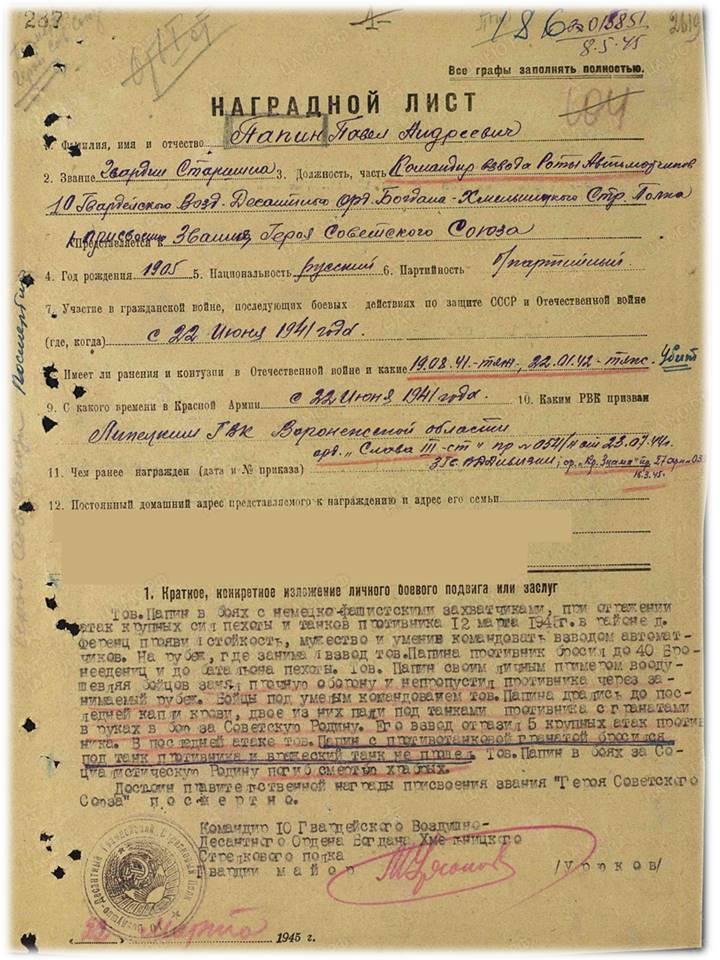 207
186
22013851
8.5.45
Все графы заполнять полностью.
НАГРАДНОЙ ЛИСТ
1. Фамилия, имя и отчество Папин Павел Андреевич
2. Звание Гвардии Старшина 3. Должность, часть Командир взвода Роты Автоматчиков
10 Гвардейского Возд-Десантного орд. Богдана-Хмельницкого Стр. Полка
к присвоению
Представляется к Звания Героя Советского Союза
4. Год рождения 1905 5. Национальность русский 6. Партийность б/партийный
7. Участие в гражданской войне, последующих боевых действиях по защите СССР и Отечественной войне
(где, когда) с 22 Июня 1941 года.
8. Имеет ли ранения и контузии в Отечественной войне и какие 19.08.41.-тяж, 22.01.42-тяж. Убит
9. С какого времени в Красной Армии с 22 Июня 1941 года. 10. Каким РВК призван
Липецким ГВК Воронежской области
орд. „Слава III-ст" пр №052/н от 23.07.44г.
11. Чем ранее награжден (дата и № приказа) 3 Гв. ВДДивизии; ор. „Кр. Знамя" пр. 27 арм
18.3.45.
12. Постоянный домашний адрес представляемого к награждению и адрес его семьи
Посмертно
1. Краткое, конкретное изложение личного боевого подвига или заслуг
Тов.Папин в боях с немецко-фашистскими захватчиками, при отражении
атак крупных сил пехоты и танков противника 12 марта 1945г. в районе д.
Ференц проявил стойкость, мужество и умение командовать взводом автомат-
чиков. На рубеж, где занимал взвод тов.Папина противник бросил до 40 Бро-
неедениц и до батальона пехоты. Тов. Папин своим личным примером вооду-
шевляя бойцов занял прочную оборону и непропустил противника через за-
нимаемый рубеж. Бойцы под умелым командованием тов.Папина дрались до пос-
ледней капли крови, двое из них пали под танками противника с гранатами
в руках в бою за Советскую Родину. Его взвод отразил 5 крупных атак против
ника. В последней атаке тов.Папин с противотанковой гранатой бросился
под танк противника и вражеский танк не прошел. Тов.Папин в боях за Со-
циалистическую Родину погиб смертью храбрых.
Достоин правительственной награды присвоения звания "Героя Советского
Союза" посмертно.
Командир 10 Гвардейского Воздушно-
Десантного Ордена Богдана Хмельницкого
Стрелкового полка
Гвардии майор /Урюков/
22 Марта 1945 г.